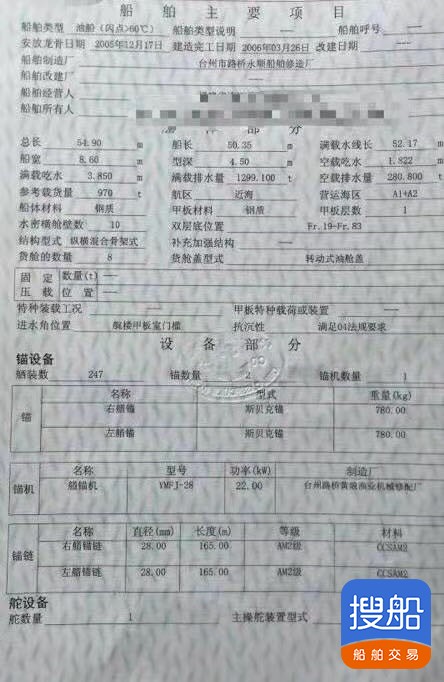 船 舶 主 要 项 目
船舶类型 油船(闪点>60℃) 船舶类型说明 — 船舶呼号 —
安放龙骨日期 2005年12月17日 建造完工日期 2006年03月26日 改建日期 —
船舶制造厂 台州市路桥永顺船舶修造厂
船舶改建厂 —
船舶经营人
船舶所有人
部 分
总长 54.90 m 船长 50.35 m 满载水线长 52.17 m
船宽 8.60 m 型深 4.50 m 空载吃水 1.822 m
满载吃水 3.850 m 满载排水量 1299.100 t 空载排水量 280.800 t
参考载货量 970 t 航区 近海 营运海区 A1+A2
船体材料 钢质 甲板材料 钢质 甲板层数 1
水密横舱壁数 10 双层底位置 Fr.19-Fr.83
结构型式 纵横混合骨架式 补充加强结构 —
货舱的数量 8 货舱盖型式 转动式油舱盖
固 定 数量(t) —
压 载 位 置 —
特种装载工况 — 甲板特种载荷或装置 —
进水角位置 艉楼甲板室门槛 抗沉性 满足04法规要求
设 备 部 分
锚设备
舾装数 247 锚数量 2 锚机数量 1
锚 名称 型式 重量(kg)
右艏锚 斯贝克锚 780.00
左艏锚 斯贝克锚 780.00
锚机 名称 型号 功率(kW) 制造厂
艏锚机 YMFJ-28 22.00 台州路桥黄琅渔业机械修配厂
锚链 名称 直径(mm) 长度(m) 等级 材料
右艏锚链 28.00 165.00 AM2级 CCSAM2
左艏锚链 28.00 165.00 AM2级 CCSAM2
舵设备
舵数量 1 主操舵装置型式
搜船
船舶交易